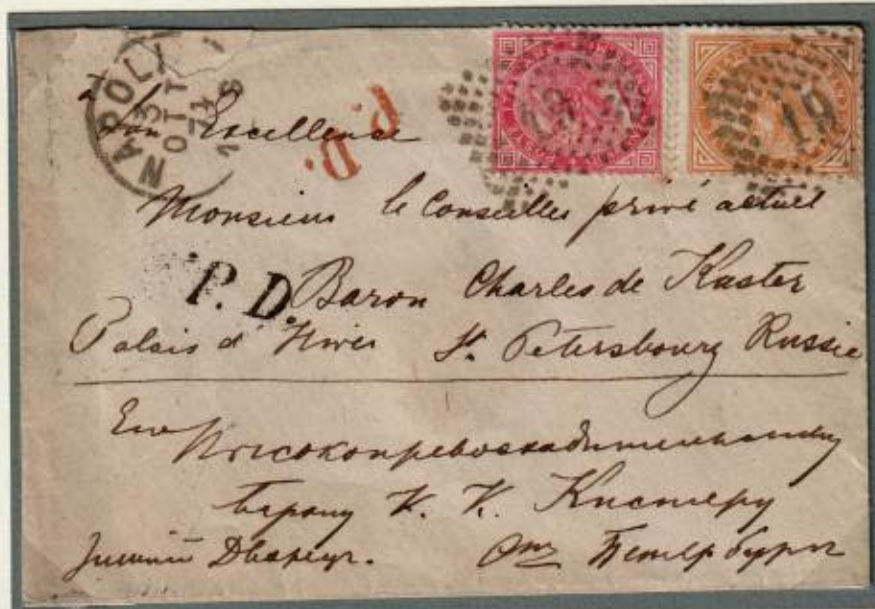 NAPOLI
3
OTT
74
P. D.
19
Son Excellence
Monsieur le Conseiller privé actuel
P. D.
Baron Charles de Kuster
Palais d'Hiver St. Petersbourg Russie
Его
Высокопревосходительству
Барону К. К. Кистеру
Зимний Дворецъ.